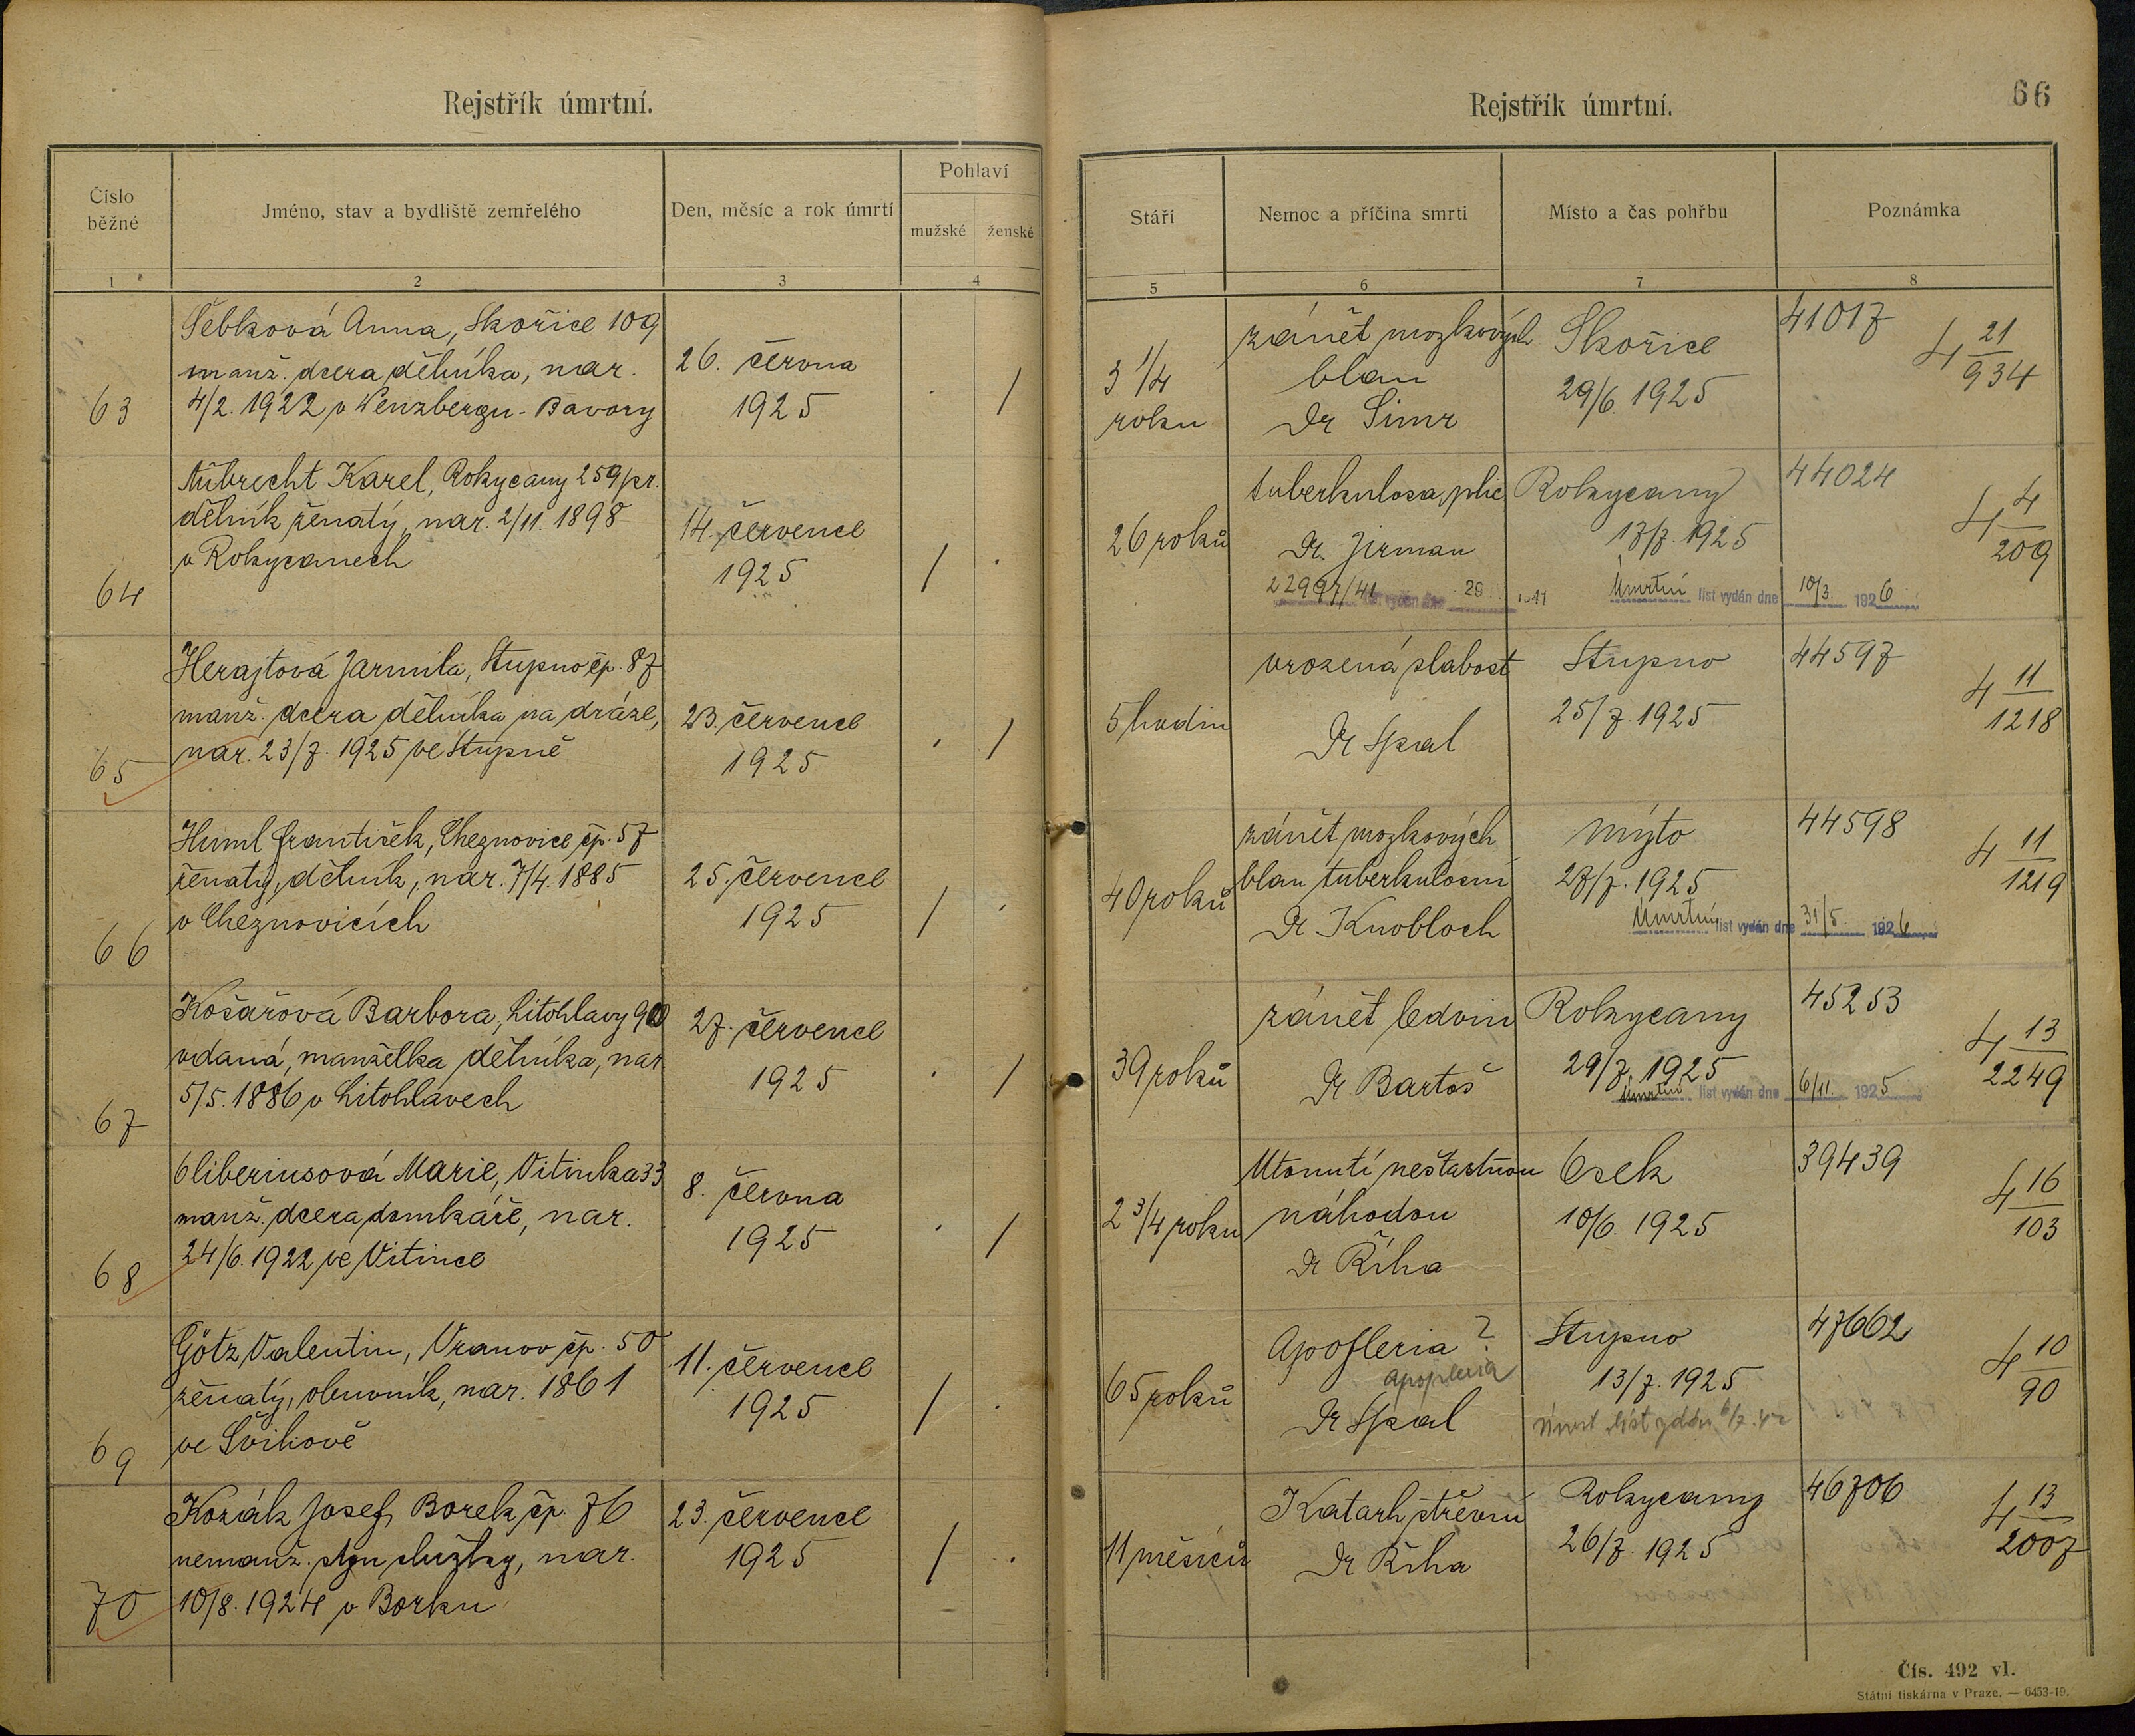 Rejstřík úmrtní.
Číslo běžné
Jméno, stav a bydliště zemřelého
Den, měsíc a rok úmrtí
Pohlaví
mužské
ženské
1
2
3
4
63
Šebková Anna, Skořice 109
manž. dcera dělníka, nar.
4/2. 1922 v Wenzbergu - Bavory
26. června
1925
64
Karel, Rokycany 259/pr.
dělník ženatý, nar. 2/11. 1898
v Rokycanech
14. července
1925
65
Herajtová Jarmila, Stupno čp. 87
manž. dcera dělníka na dráze,
nar. 23/7. 1925 ve Stupně
23. července
1925
66
Huml František, Cheznovice čp. 57
ženatý, dělník, nar. 7/4. 1885
v Cheznovicích
25. července
1925
67
Košařová Barbora, Litohlavy
vdaná, manželka dělníka, nar.
5/5. 1886 v Litohlavech
27. července
1925
68
Oliberiusová Marie, Vitinka 33
manž. dcera domkáře, nar.
24/6. 1922 ve Vitince
8. června
1925
69
Götz Valentin, Vranov čp. 50
ženatý, obuvník, nar. 1861
ve Švihově
11. července
1925
70
Kozák Josef, Borek čp. 76
nemanž. syn služky, nar.
10/8. 1924 v Borku
23. července
1925
Rejstřík úmrtní.
66
Stáří
Nemoc a příčina smrti
Místo a čas pohřbu
Poznámka
5
6
7
8
3 1/4
roku
zánět mozkových
blan
Dr Simr
Skořice
29/6. 1925
41017
4 21/934
26 roků
tuberkulosa plic
Dr. Jirman
22997/41 vydán dne 29 1941
Rokycany
17/7. 1925
Úmrtní list vydán dne 10/3. 1926
44024
4 4/209
5 hodin
vrozená slabost
Dr Spal
Stupno
25/7. 1925
44597
4 11/1218
40 roků
zánět mozkových
blan tuberkulosní
Dr. Knobloch
Mýto
27/7. 1925
Úmrtní list vydán dne 31/5 1926
44598
4 11/1219
39 roků
zánět ledvin
Dr Bartoš
Rokycany
29/7. 1925
Úmrtní list vydán dne 6/11. 1925
45253
4 13/2249
2 3/4 roku
Utonutí nešťastnou
náhodou
Dr Říha
Osek
10/6. 1925
39439
4 16/103
65 roků
Apofleria ?
apoplexia
Dr Spal
Stupno
13/7. 1925
Úmrt list
47662
4 10/90
11 měsíců
Katarh střevní
Dr Říha
Rokycany
26/7. 1925
46706
4 13/2007
Čís. 492 vl.
Státní tiskárna v Praze. — 6453-19.